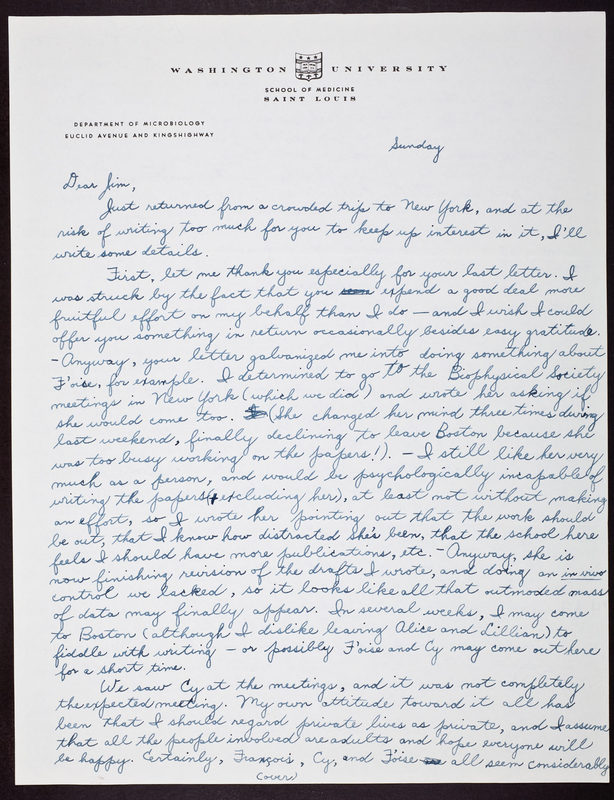 WASHINGTON UNIVERSITY
SCHOOL OF MEDICINE
SAINT LOUIS
DEPARTMENT OF MICROBIOLOGY
EUCLID AVENUE AND KINGSHIGHWAY
Sunday
Dear Jim,
Just returned from a crowded trip to New York, and at the
risk of writing too much for you to keep up interest in it, I'll
write some details.
First, let me thank you especially for your last letter. I
was struck by the fact that you expend a good deal more
fruitful effort on my behalf than I do — and I wish I could
offer you something in return occasionally besides easy gratitude.
- Anyway, your letter galvanized me into doing something about
F'oise, for example. I determined to go to the Biophysical Society
meetings in New York (which we did) and wrote her asking if
she would come too. (She changed her mind three times during
last weekend, finally declining to leave Boston because she
was too busy working on the papers!). - I still like her very
much as a person, and would be psychologically incapable of
writing the papers (excluding her), at least not without making
an effort, so I wrote her pointing out that the work should
be out, that I know how distracted she's been, that the school here
feels I should have more publications, etc. - Anyway, she is
now finishing revision of the drafts I wrote, and doing an in vivo
control we lacked, so it looks like all that outmoded mass
of data may finally appear. In several weeks, I may come
to Boston (although I dislike leaving Alice and Lillian) to
fiddle with writing - or possibly F'oise and Cy may come out here
for a short time.
We saw Cy at the meetings, and it was not completely
the expected meeting. My own attitude toward it all has
been that I should regard private lives as private, and I assume
that all the people involved are adults and hope everyone will
be happy. Certainly, François, Cy, and F'oise all seem considerably
(over)